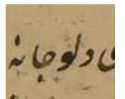 ى دلو جانه